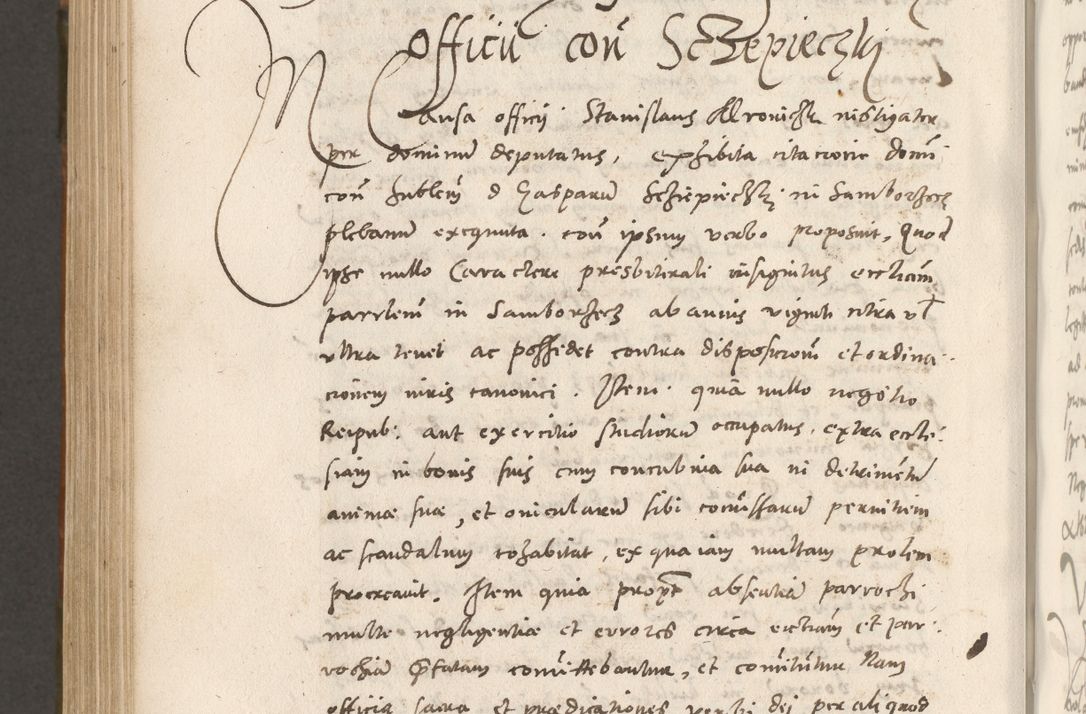 Officii con̄ Sczepieczki
Causa officii Stanislaus Kronicki instigator
per dominum deputatus, exhibita citacione domi
con̄ nobilem d Gasparum Sczepieczki in Samborzecz
plebanum exequuta. con̄ ipsum verbo proposuit, Quod
ipse nullo Caractere presbiterali insignitus eccliam
parrlem̄ in Samborzecz ab annis viginti citra vl
vltra tenet ac possedet contra disposicioni et ordina-
cionem iuris canonici. Item quia nullo negotio
Reipub: aut exercitio studiorum occupatus, extra eccle-
siam in bonis suis cum concubina sua in detrimentum
animæ suæ, et ovicularum sibi comissarum perniciem
ac scandalum cohabitat, ex qua iam multam prolem
procreavit. Item quia propt absentiam parrochi
multe negligentiæ et errores circa eccliam et par-
rochiam pfatam comittebantur, et comituntur Nam
officia sacra et prædicationes verbi dei per aliquod